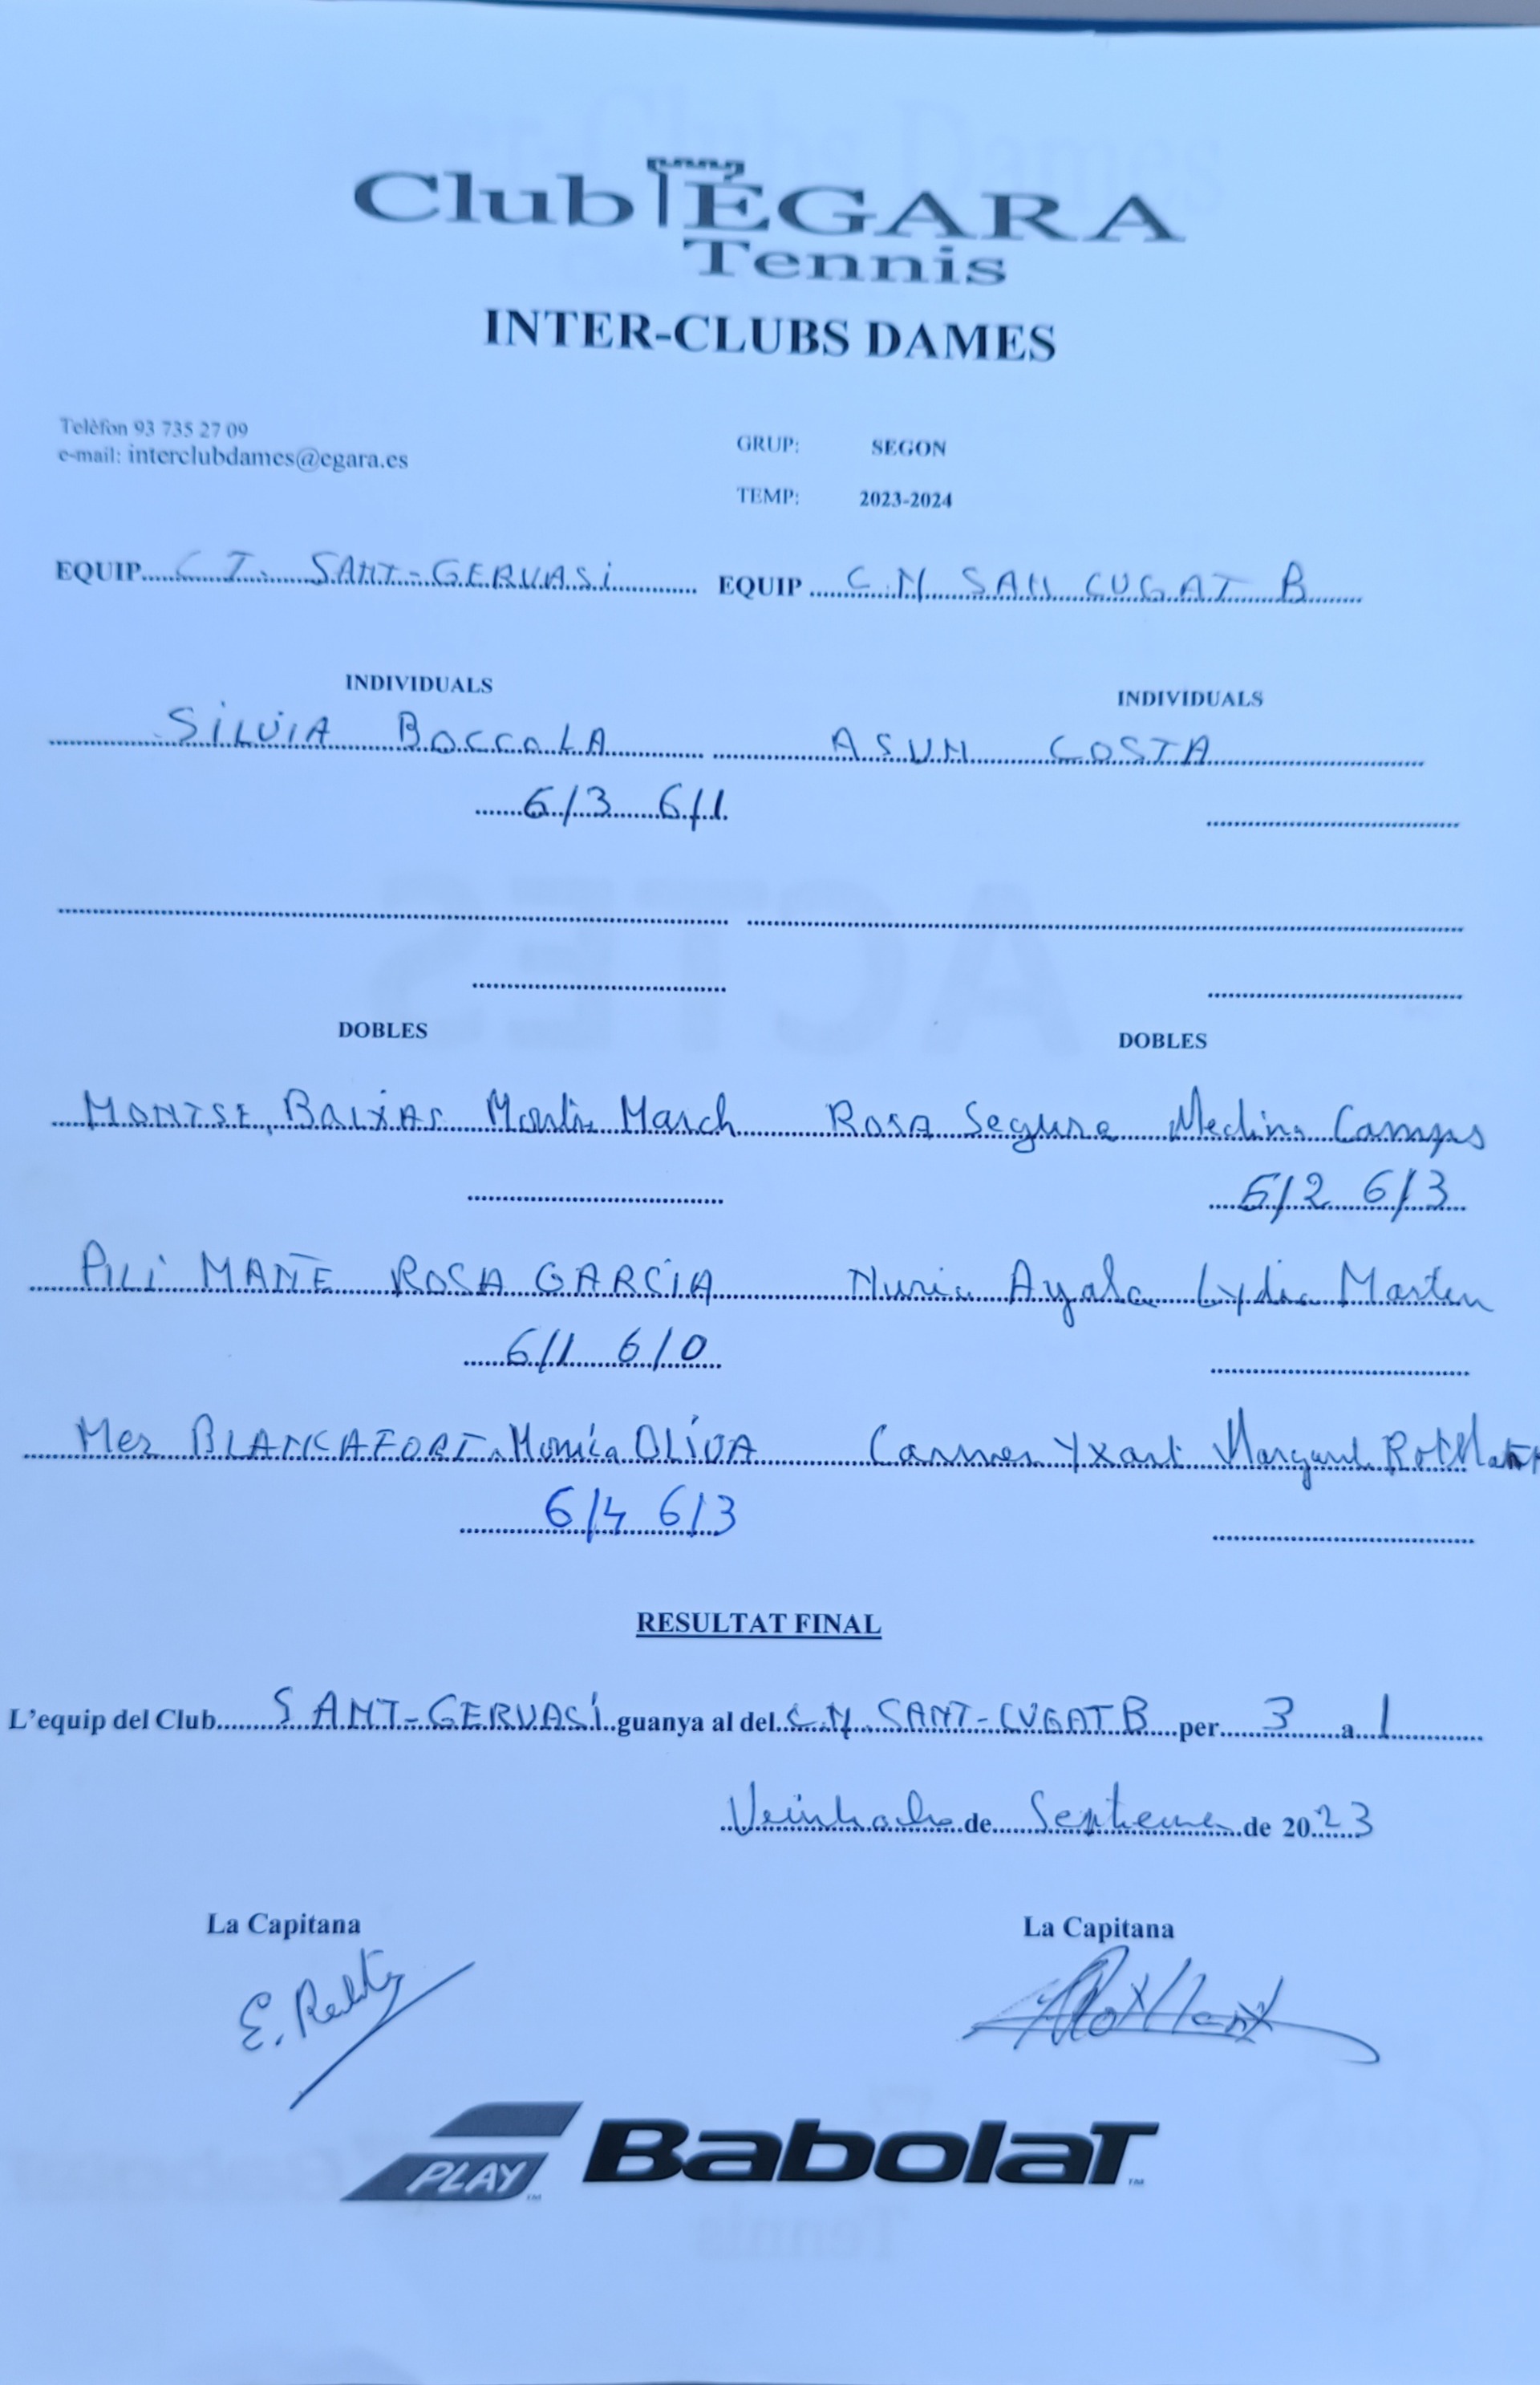 Club ÉGARA
Tennis
INTER-CLUBS DAMES
Telèfon 93 735 27 09
e-mail: interclubdames@egara.es
GRUP: SEGON
TEMP: 2023-2024
EQUIP C T. SANT-GERVASi EQUIP C.N SAN CUGAT B
INDIVIDUALS INDIVIDUALS
SiLViA BOCCOLA ASUN COSTA
6/3 6/1
DOBLES DOBLES
MONTSE BAIXAS Montse March ROSA Segura Medina Camps
6/2 6/3
PiLi MAÑE ROSA GARCIA Nuria Ayala Lydia Marten
6/1 6/0
Mer BLANCAFORT Monica OLIVA Carmen Yxart Margarit Rottlant
6/4 6/3
RESULTAT FINAL
L'equip del Club SANT-GERVASi guanya al del C.N. SANT-CUGAT B per 3 a 1
Veintiocho de Septiembre de 2023
La Capitana La Capitana
E.
PLAY Babolat
ACTES
Tennis